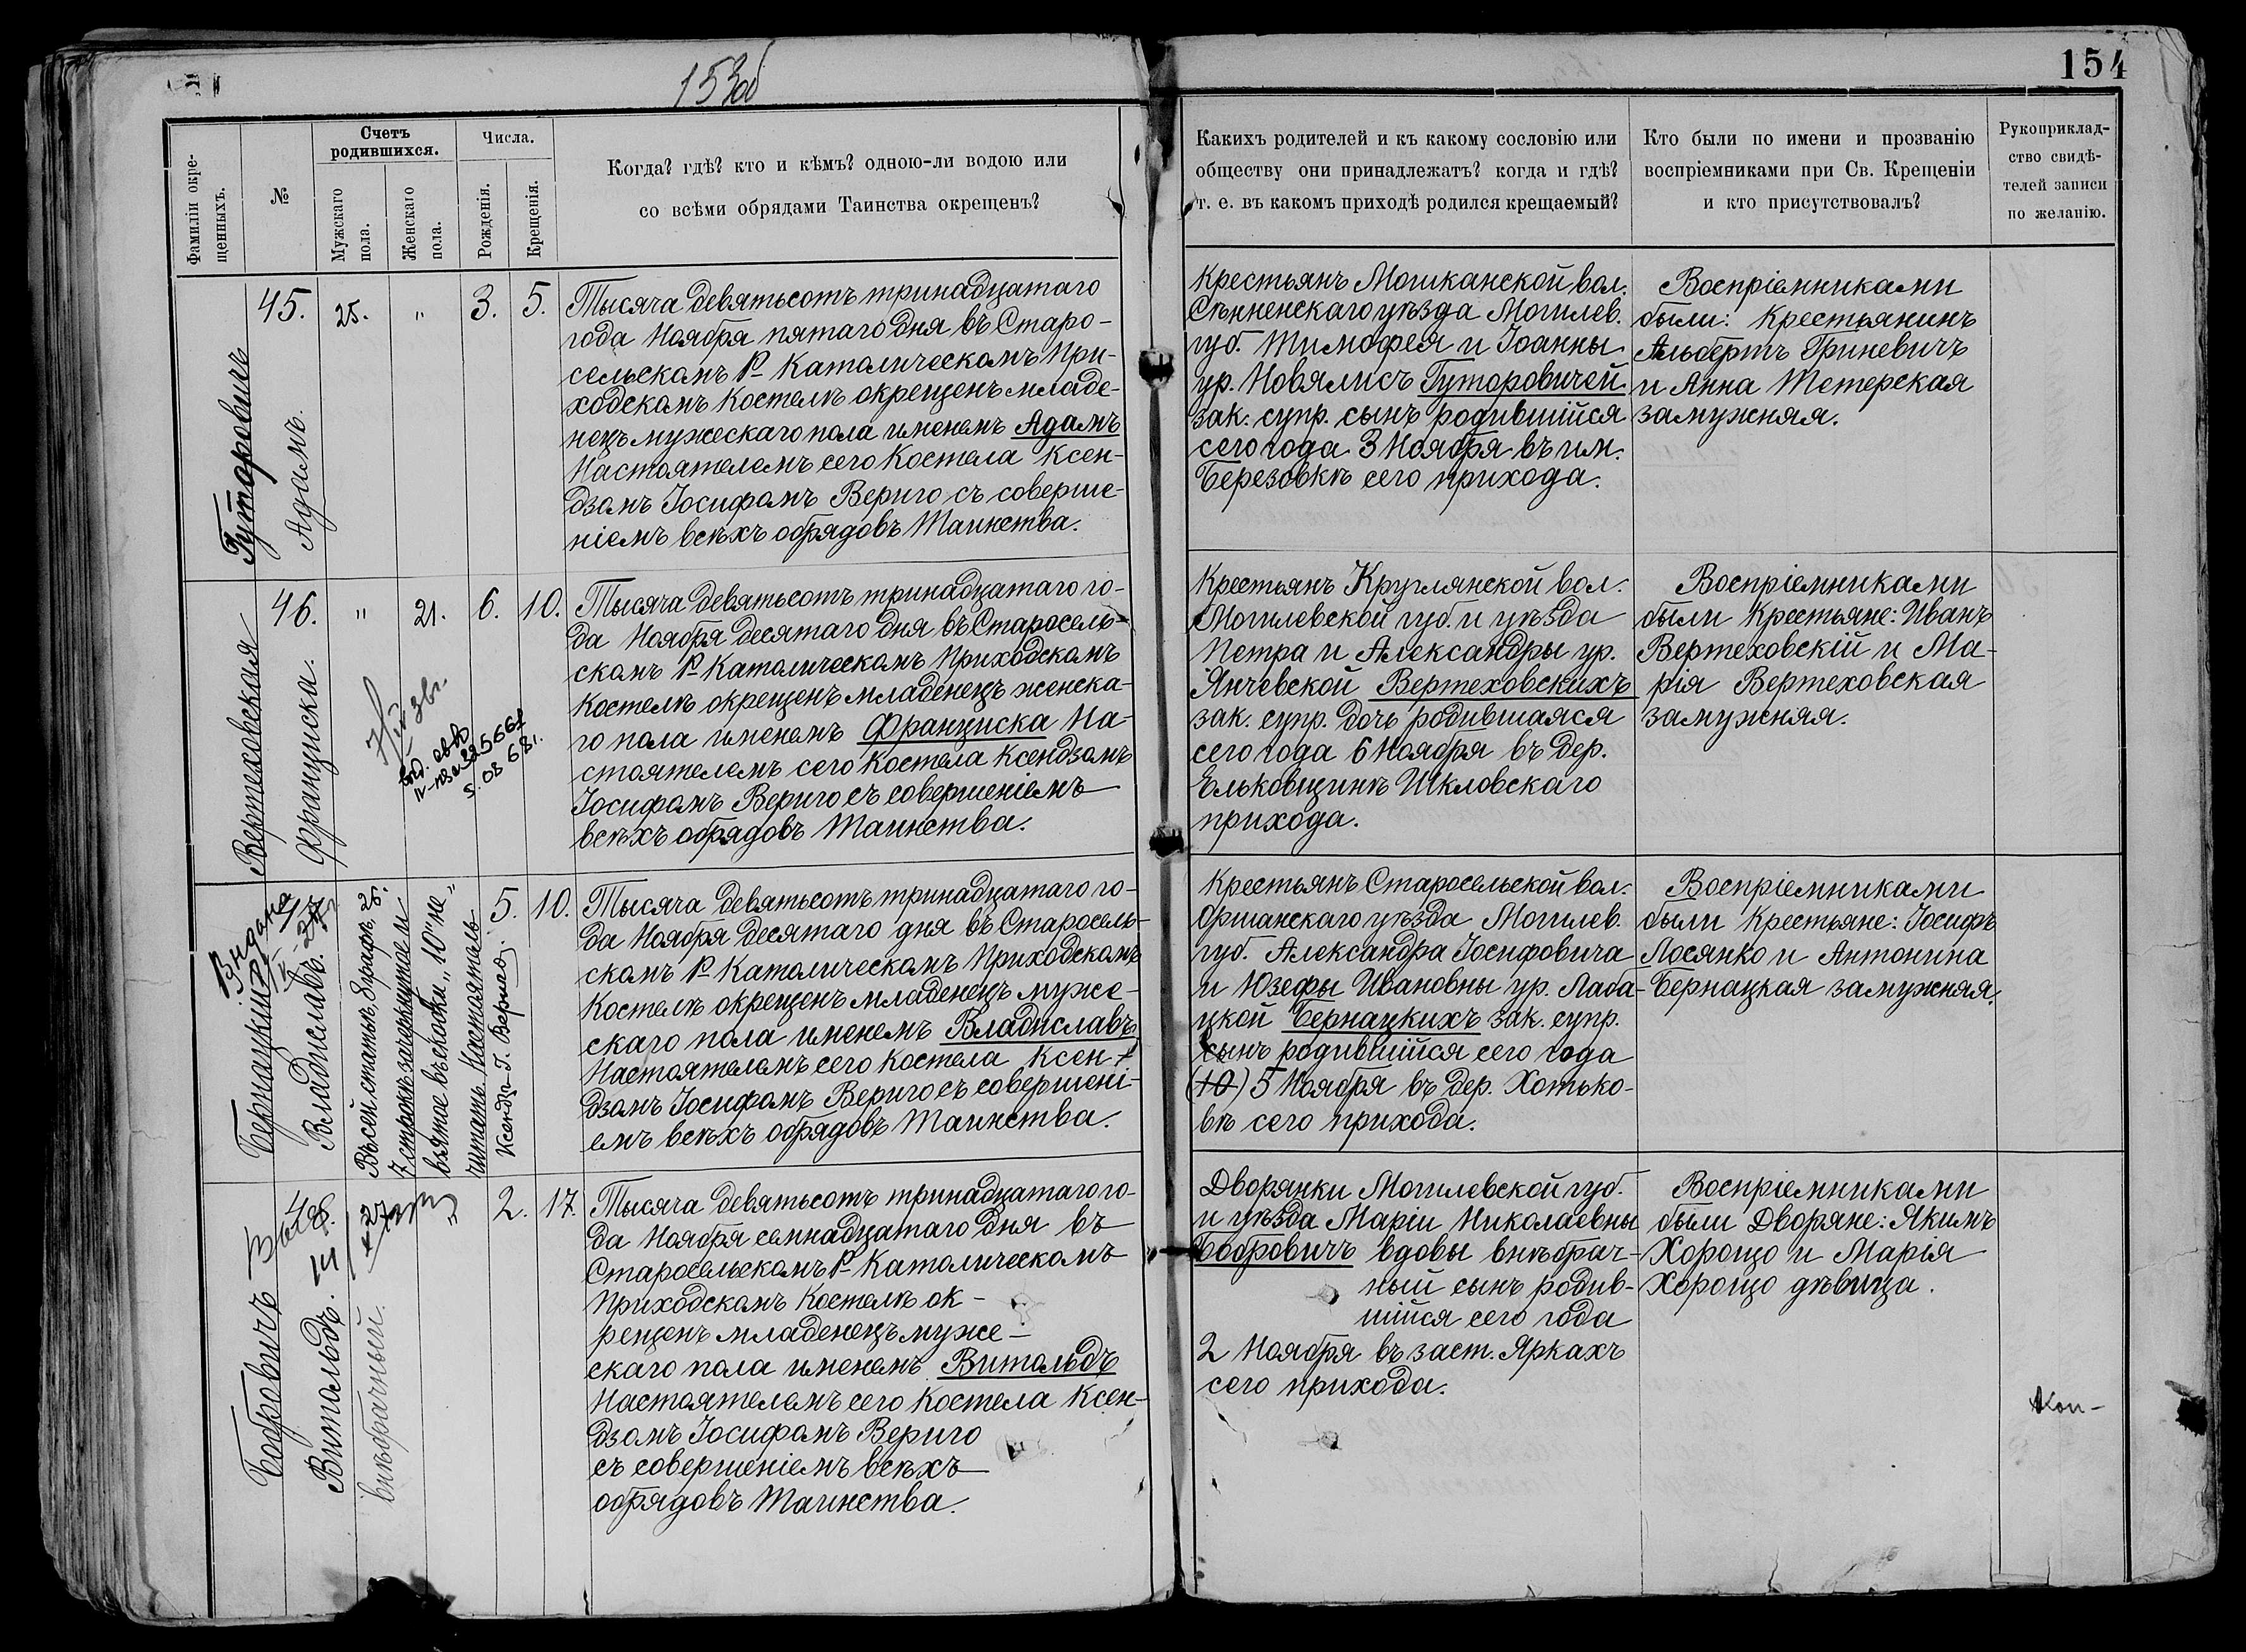 153об
154
Фамиліи окре-
щенныхъ.
№
Счетъ
родившихся.
Мужскаго
пола.
Женскаго
пола.
Числа.
Рожденія.
Крещенія.
Когда? гдѣ? кто и кѣмъ? одною-ли водою или
со всѣми обрядами Таинства окрещенъ?
Какихъ родителей и къ какому сословію или
обществу они принадлежатъ? когда и гдѣ?
т. е. въ какомъ приходѣ родился крещаемый?
Кто были по имени и прозванію
воспріемниками при Св. Крещеніи
и кто присутствовалъ?
Рукоприклад-
ство свидѣ-
телей записи
по желанію.
Гуторовичъ
Адамъ.
45.
25.
"
3.
5.
Тысяча девятьсотъ тринадцатаго
года Ноября пятаго дня въ Старо-
сельскомъ Р-Католическомъ При-
ходскомъ Костелѣ окрещенъ младе-
нецъ мужескаго пола именемъ Адамъ
Настоятелемъ сего Костела Ксен-
дзомъ Іосифомъ Вериго съ соверше-
ніемъ всѣхъ обрядовъ Таинства.
Крестьянъ Мошканской вол.
Сѣнненскаго уѣзда Могилев.
губ. Тимофея и Іоанны
ур. Новялисъ Гуторовичей
зак. супр. сынъ родившійся
сего года 3 Ноября въ им.
Березовкѣ сего прихода.
Воспріемниками
были: Крестьянинъ
Альбертъ Гриневичъ
и Анна Тетерская
замужняя.
Вертеховская
Франциска.
46.
"
21.
6.
10.
5.08 68г.
Тысяча девятьсотъ тринадцатаго го-
да Ноября десятаго дня въ Старосель-
скомъ Р-Католическомъ Приходскомъ
Костелѣ окрещенъ младенецъ женска-
го пола именемъ Франциска На-
стоятелемъ сего Костела Ксендзомъ
Іосифомъ Вериго съ совершеніемъ
всѣхъ обрядовъ Таинства.
Крестьянъ Круглянской вол.
Могилевской губ. и уѣзда
Петра и Александры ур.
Янчевской Вертеховскихъ
зак. супр. дочь родившаяся
сего года 6 Ноября въ дер.
Ельковщинѣ Шкловскаго
прихода.
Воспріемниками
были Крестьяне: Иванъ
Вертеховскій и Ма-
рія Вертеховская
замужняя.
Бернацкій
Владиславъ.
Видана
47
Въ сей статьѣ, графѣ 2й.
7 строкѣ зачеркнутое и
взятое въ скобки „10" не
читать Настоятель
Ксендзъ І. Вериго.
5.
10.
Тысяча девятьсотъ тринадцатаго го-
да Ноября десятаго дня въ Старосель-
скомъ Р-Католическомъ Приходскомъ
Костелѣ окрещенъ младенецъ муже-
скаго пола именемъ Владиславъ
Настоятелемъ сего Костела Ксен-
дзомъ Іосифомъ Вериго съ совершені-
емъ всѣхъ обрядовъ Таинства.
Крестьянъ Старосельской вол.
Оршанскаго уѣзда Могилев.
губ. Александра Іосифовича
и Юзефы Ивановны ур. Лаба-
цкой Бернацкихъ зак. супр.
сынъ родившійся сего года
(10) 5 Ноября въ дер. Хотько-
вѣ сего прихода.
Воспріемниками
были Крестьяне: Іосифъ
Лосянко и Антонина
Бернацкая замужняя.
Бобровичъ
Витольдъ.
внѣбрачный.
48.
27
"
2.
17.
Тысяча девятьсотъ тринадцатаго го-
да Ноября семнадцатаго дня въ
Старосельскомъ Р-Католическомъ
Приходскомъ Костелѣ ок-
рещенъ младенецъ муже-
скаго пола именемъ Витольдъ
Настоятелемъ сего Костела Ксен-
дзомъ Іосифомъ Вериго
съ совершеніемъ всѣхъ
обрядовъ Таинства.
Дворянки Могилевской губ.
и уѣзда Маріи Николаевны
Бобровичъ вдовы внѣбрач-
ный сынъ родив-
шійся сего года
2 Ноября въ заст. Яркахъ
сего прихода.
Воспріемниками
были Дворяне: Якимъ
Хорощо и Марія
Хорощо дѣвица.